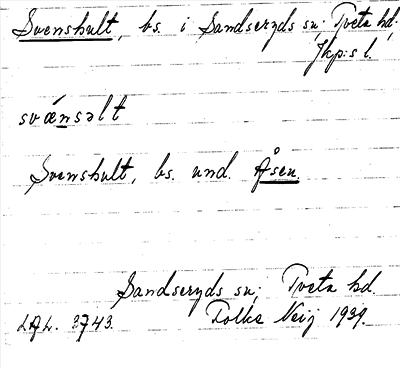 Svenshult, bs. i Sandseryds sn; Tveta hd.,
Jkp:s l.
svænsəlt
Svenshult, bs. und. Åsen.
Sandseryds sn; Tveta hd.
LAL. 3743. Folke Neij 1939.